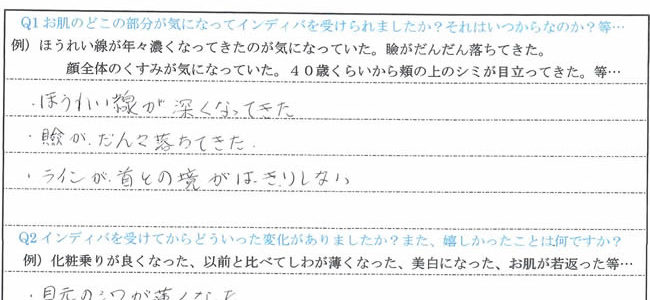 Q1 お肌のどこの部分が気になってインディバを受けられましたか？それはいつからなのか？等…
例）ほうれい線が年々濃くなってきたのが気になっていた。瞼がだんだん落ちてきた。
顔全体のくすみが気になっていた。４０歳くらいから頬の上のシミが目立ってきた。等…
・ほうれい線が深くなってきた
・瞼が、だんだん落ちてきた.
・ラインが、首との境がはっきりしない
Q2 インディバを受けてからどういった変化がありましたか？また、嬉しかったことは何ですか？
例）化粧乗りが良くなった、以前と比べてしわが薄くなった、美白になった、お肌が若返った等…
・目元のシワが薄くなった